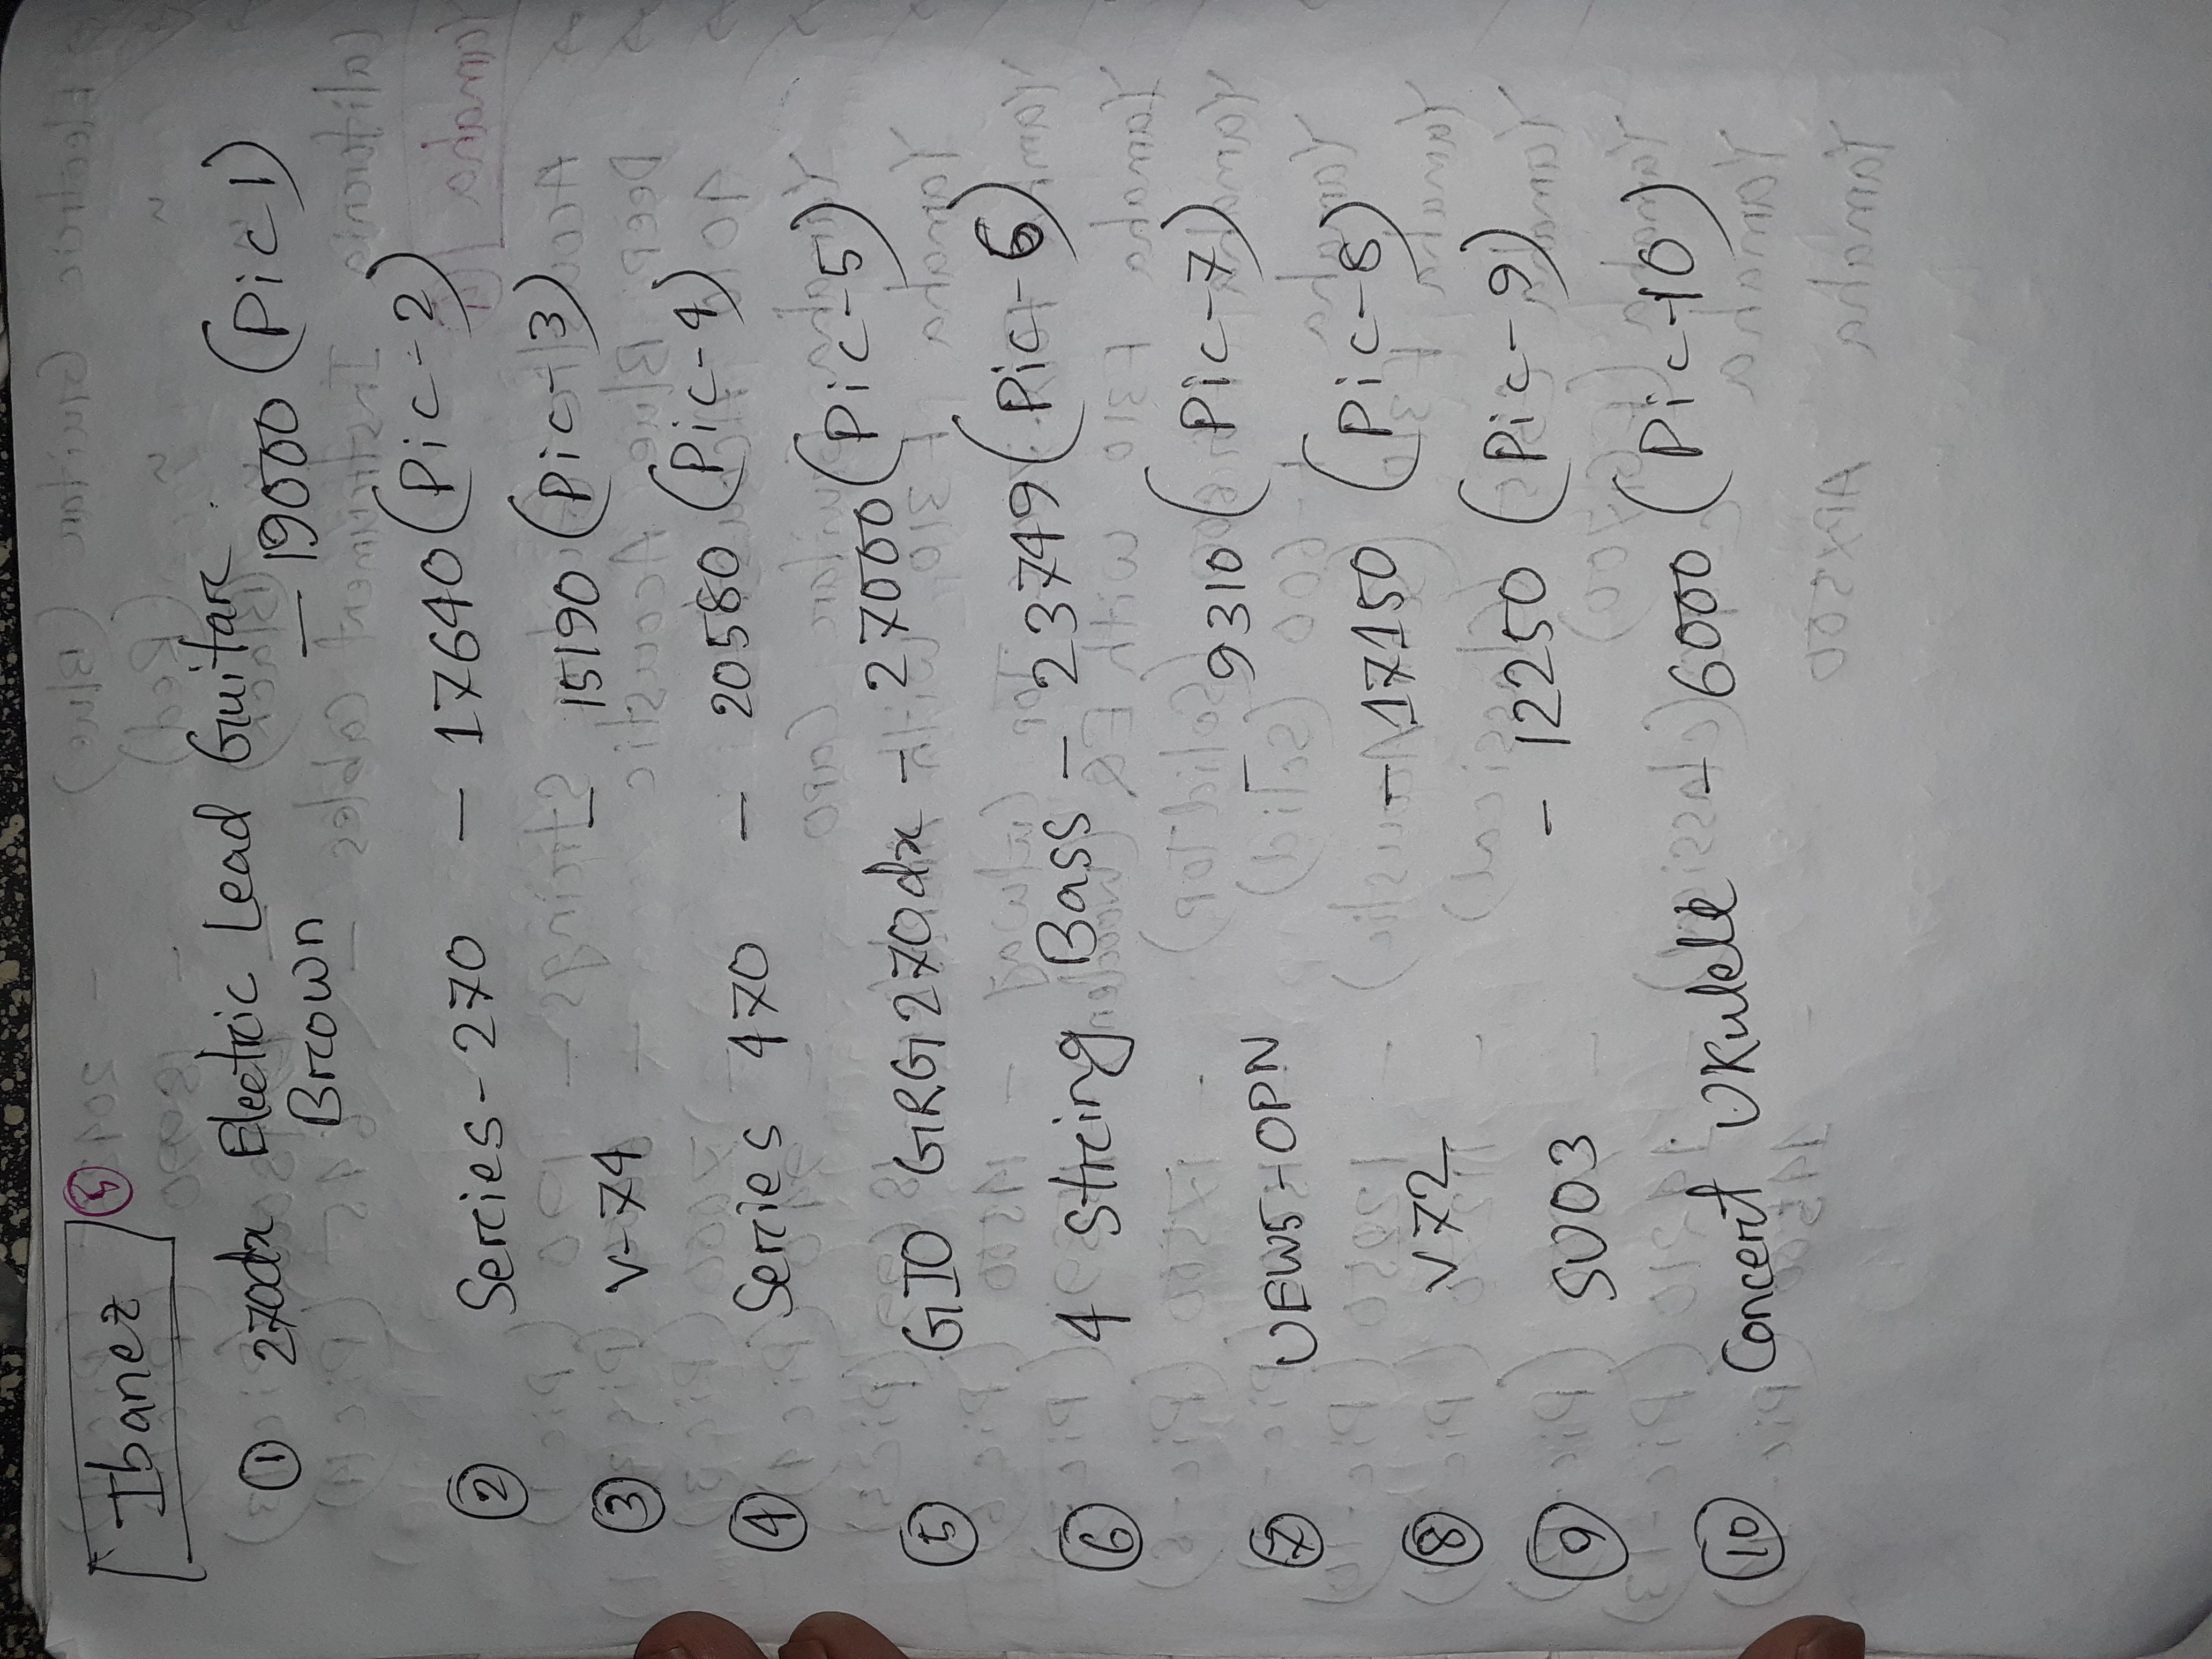 Ibanez 5
① 270dx Electric Lead Guitar
Brown – 19000 (Pic 1)
② Series-270 – 17640 (Pic-2)
③ V-74 – 15190 (Pic-3)
④ Series 470 – 20580 (Pic-4)
⑤ GIO GRG270dx – 27000 (Pic-5)
⑥ 4 String Bass – 23749 (Pic-6)
⑦ UEW5-OPN – 9310 (Pic-7)
⑧ V72 – 17150 (Pic-8)
⑨ SU03 – 12250 (Pic-9)
⑩ Concert Ukulele – 6000 (Pic-10)